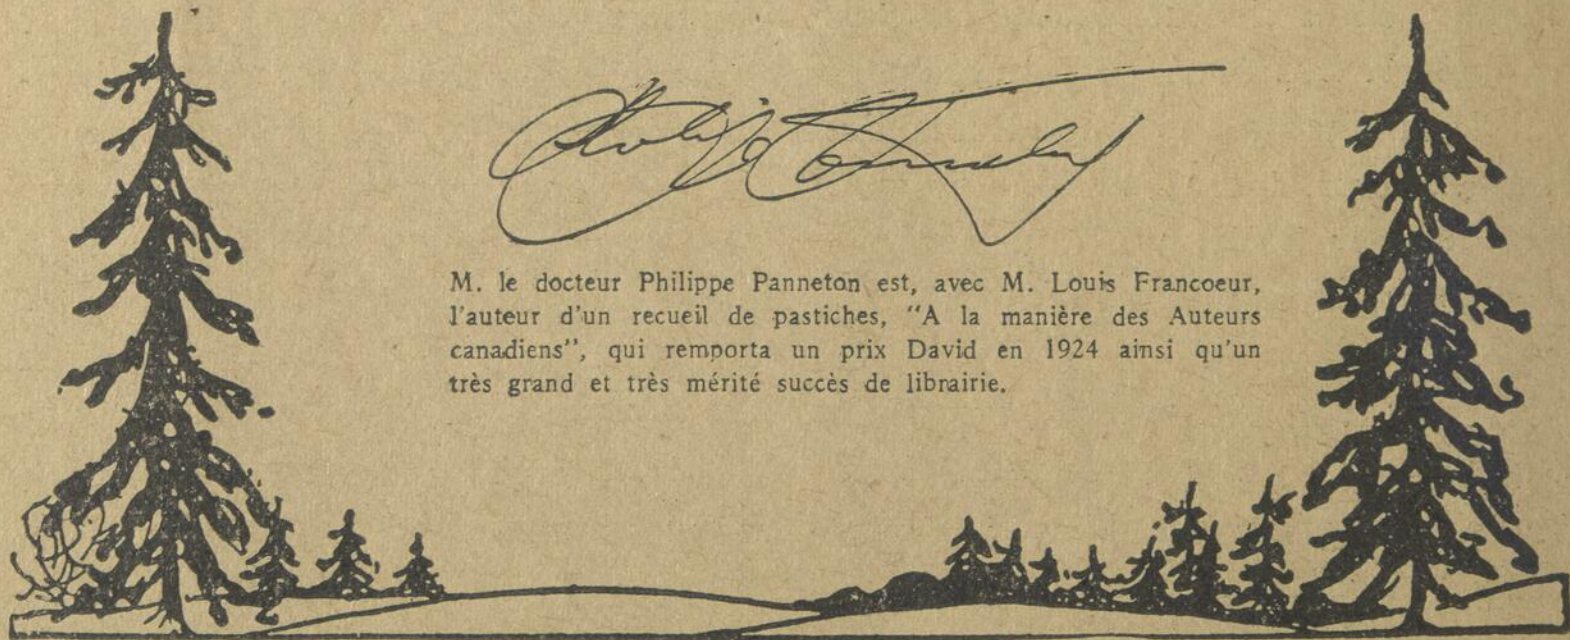 Philippe Panneton
M. le docteur Philippe Panneton est, avec M. Louis Francoeur,
l'auteur d'un recueil de pastiches, "A la manière des Auteurs
canadiens", qui remporta un prix David en 1924 ainsi qu'un
très grand et très mérité succès de librairie.